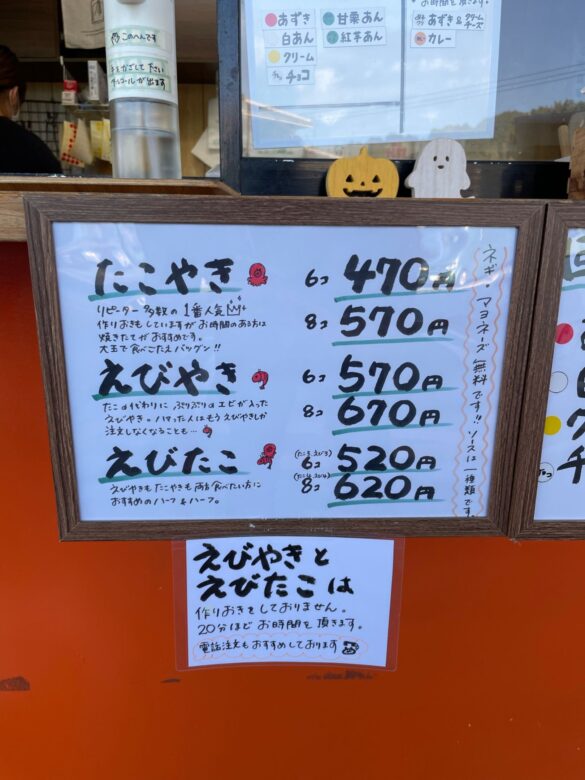 このへんです
手をかざして下さい
アルコールが出ます
お時間を頂きます。
あずき
白あん
クリーム
チョコ
甘栗あん
紅芋あん
あずき&クリームチーズ
カレー
たこやき
6コ 470円
リピーター多数の1番人気
8コ 570円
作りおきもしていますがお時間のある方は
焼きたてがおすすめです。
大玉で食べごたえバツグン!!
えびやき
6コ 570円
たこの代わりにぷりぷりのエビが入った
8コ 670円
えびやき。ハマった人はもうえびやきしか
注文しなくなることも…
えびたこ
(たこ3、えび3)
6コ 520円
(たこ4、えび4)
8コ 620円
えびやきもたこやきも両方食べたい方に
おすすめのハーフ&ハーフ。
ネギ・マヨネーズ無料です!! ソースは一種類です。
えびやきと
えびたこは
作りおきをしておりません。
20分ほどお時間を頂きます。
電話注文もおすすめしております